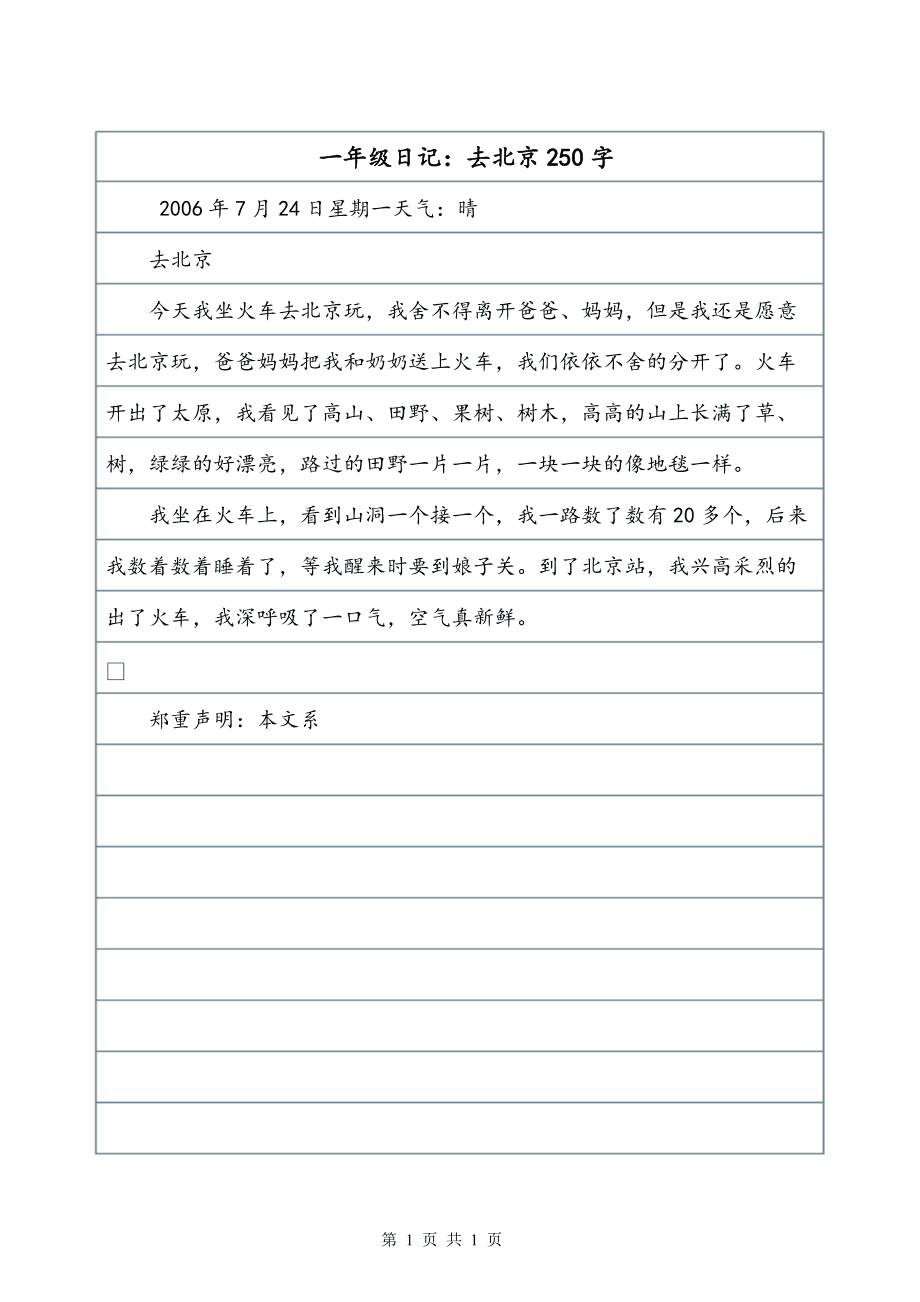 一年级日记：去北京250字
2006年7月24日星期一天气：晴
去北京
今天我坐火车去北京玩，我舍不得离开爸爸、妈妈，但是我还是愿意
去北京玩，爸爸妈妈把我和奶奶送上火车，我们依依不舍的分开了。火车
开出了太原，我看见了高山、田野、果树、树木，高高的山上长满了草、
树，绿绿的好漂亮，路过的田野一片一片，一块一块的像地毯一样。
我坐在火车上，看到山洞一个接一个，我一路数了数有20多个，后来
我数着数着睡着了，等我醒来时要到娘子关。到了北京站，我兴高采烈的
出了火车，我深呼吸了一口气，空气真新鲜。
□
郑重声明：本文系
第 1 页 共 1 页